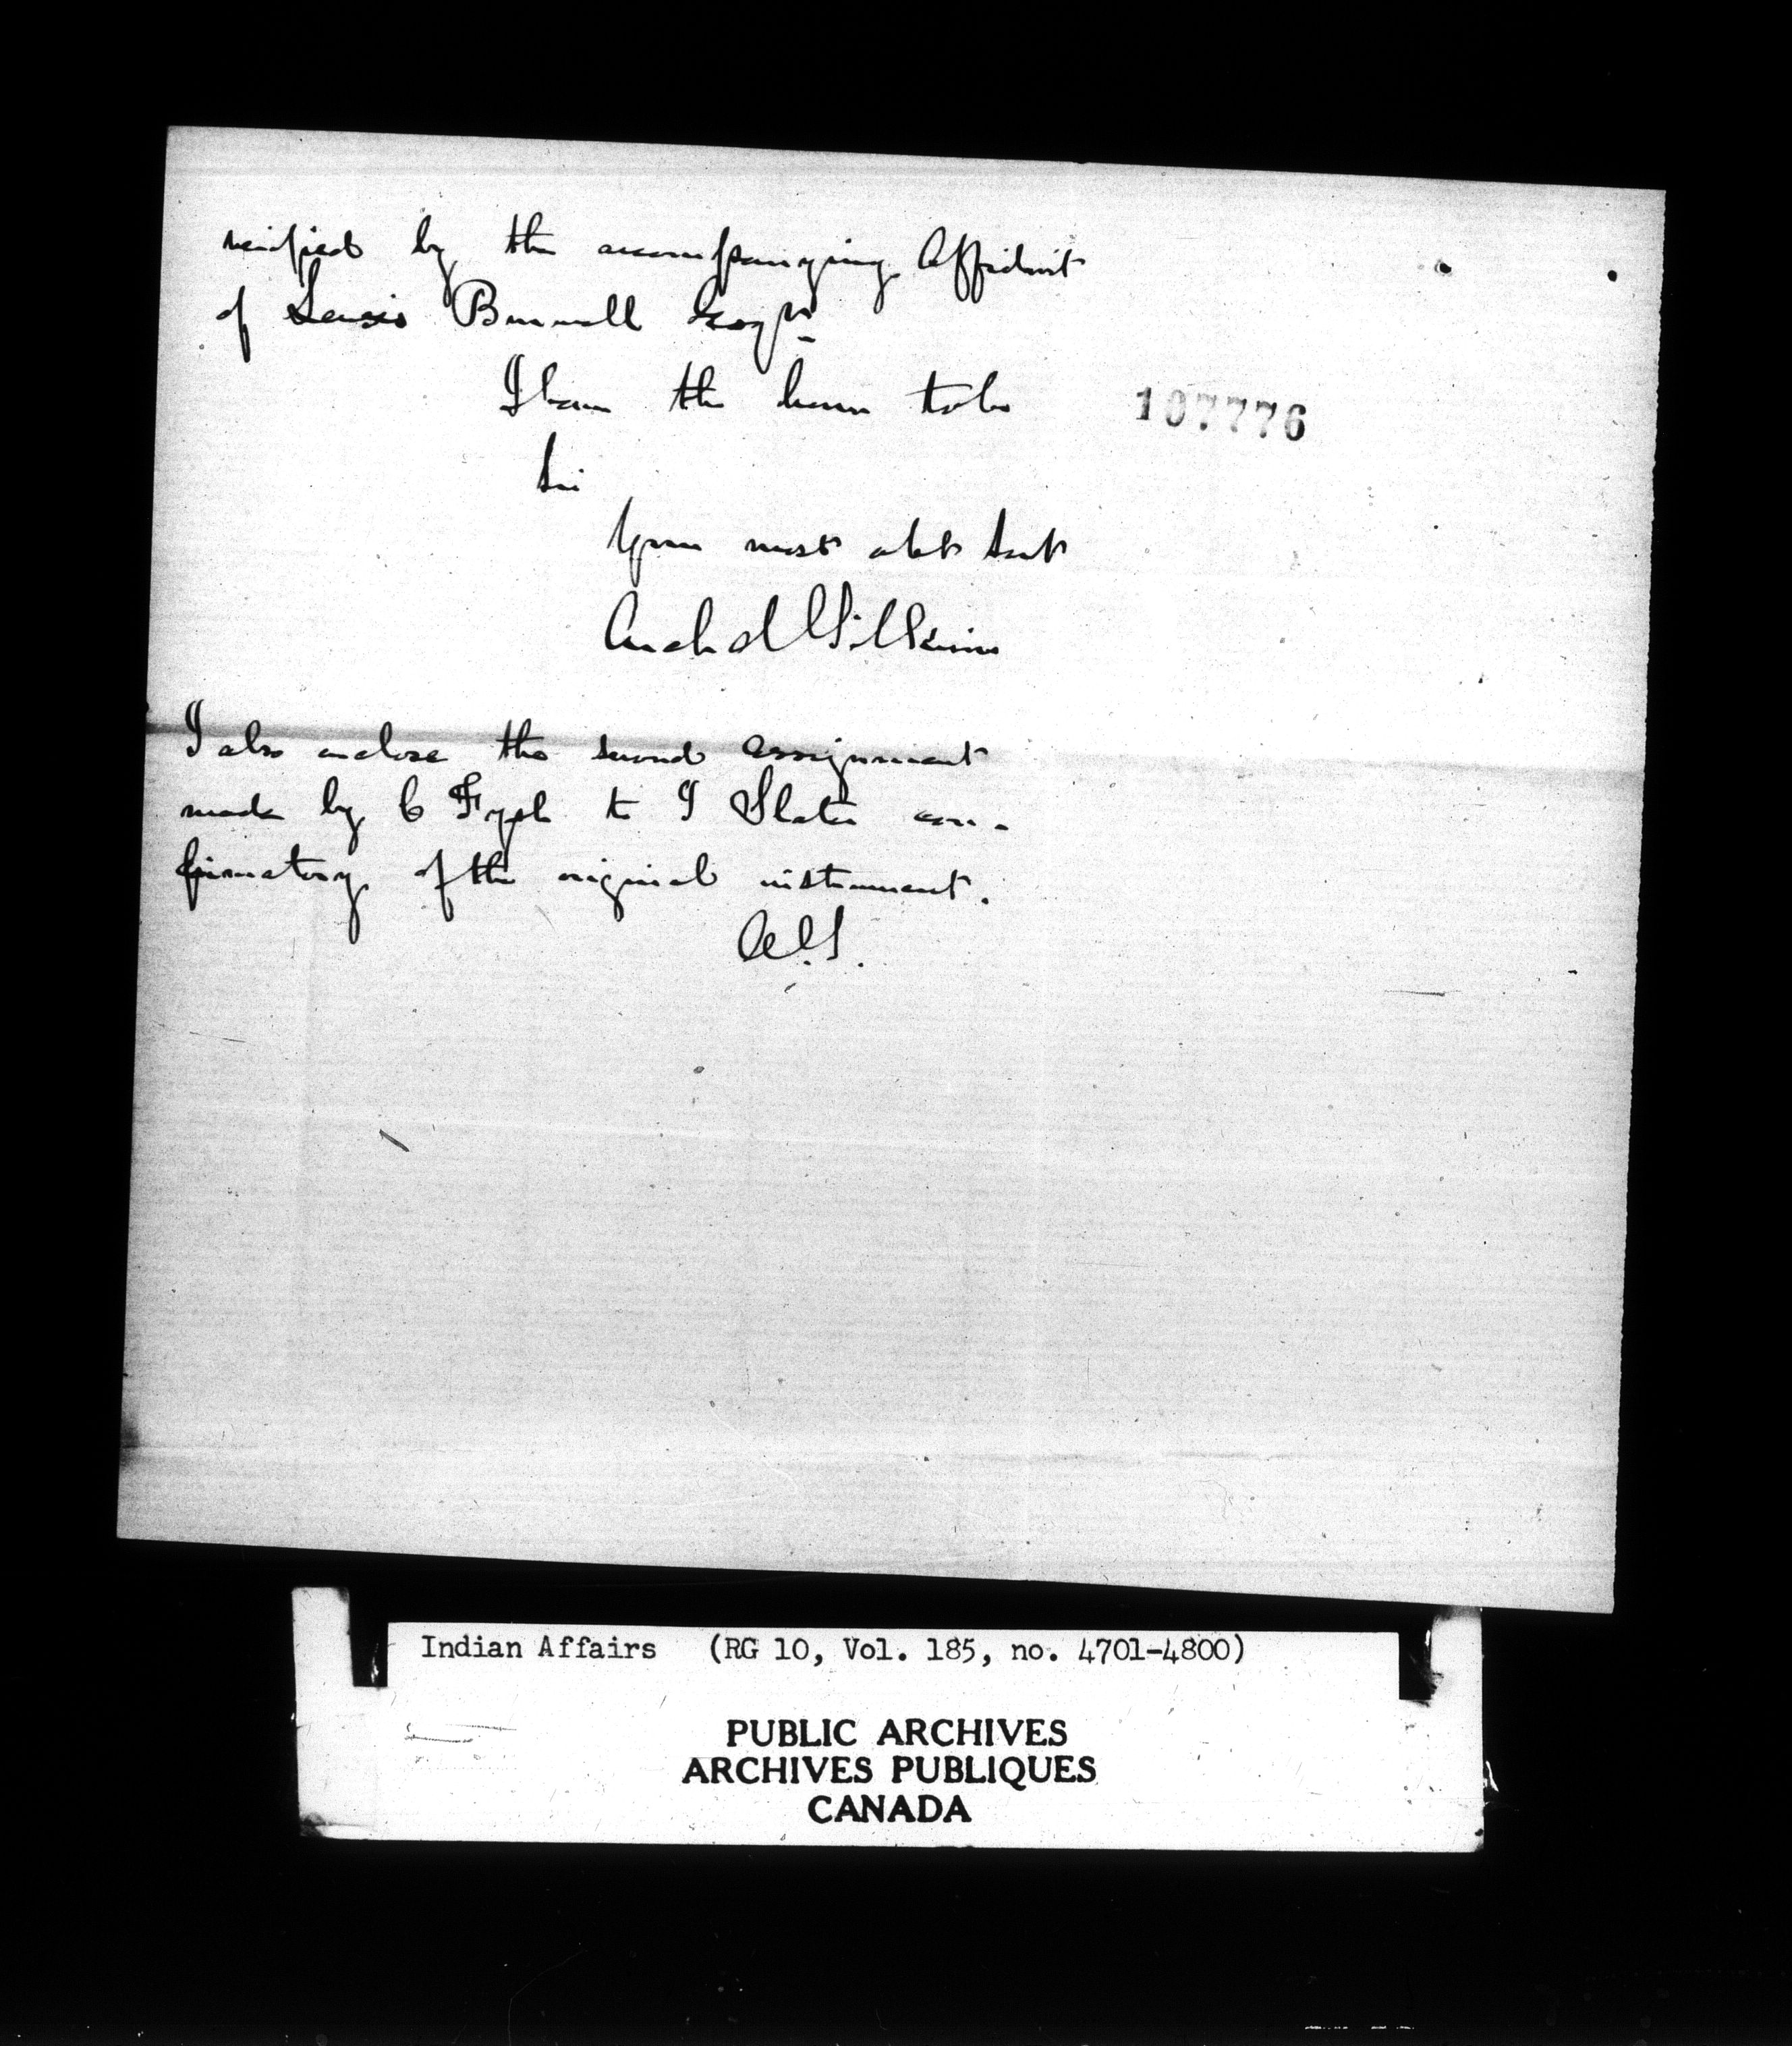 verified by the accompanying Affidavit
of Lewis Burwell Esqr.
I have the honor to be
107776
Sir
Your most obt Sert
Archd Gilkison
I also enclose the second assignment
made by C Fysh to I Slater con-
firmatory of the original instrument.
A.G.
Indian Affairs (RG 10, Vol. 185, no. 4701-4800)
PUBLIC ARCHIVES
ARCHIVES PUBLIQUES
CANADA